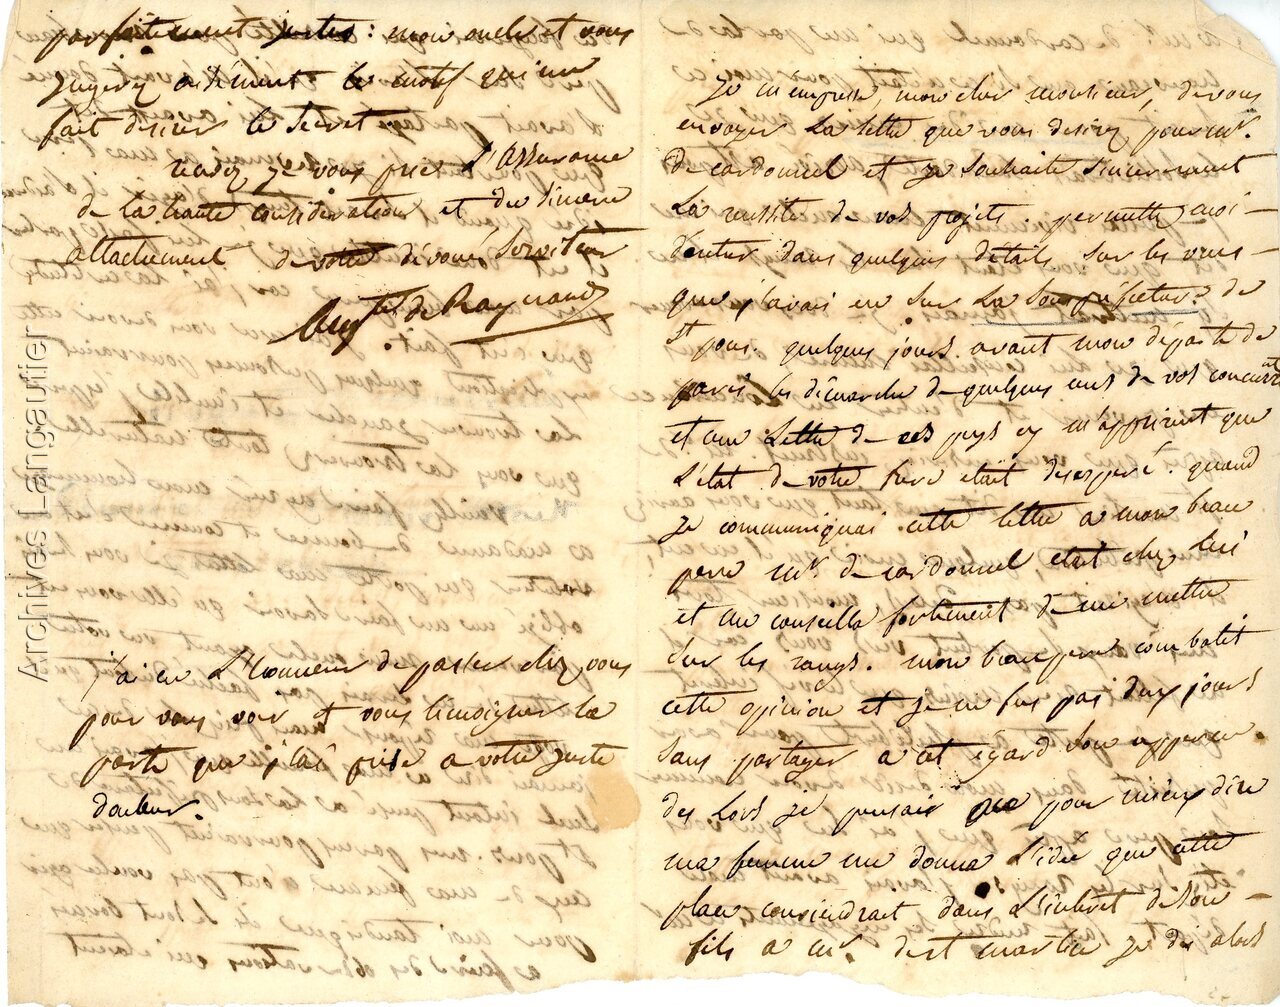 parfaitement justes : mon oncle et vous
jugerez aisément le motif qui me
fait desirer le secret.
rendez je vous prie L'assurance
de la haute consideration et du sincere
attachement de votre dévoué serviteur
Aug.te de Raynaud
j'ai eu L'honneur de passer chez vous
pour vous voir et vous temoigner la
parte que j'ai prise a votre juste
douleur.
Je m'empresse, mon cher monsieur, de vous
envoyer La lettre que vous desirez pour mr.
de cardonnel et je souhaite sincerement
La reussite de vos projets. permettez moi
d'entrer dans quelques details sur les vues
que j'avais eu sur La Sous préfecture de
St pons. quelques jours avant mon départ de
paris les démarches de quelques uns de vos concurrents
et une Lettre de ces pays cy m'apprirent que
L'état de votre Pere etait desesperé. quand
je communiquai cette lettre a mon beau
pere mr. de cardonnel etait chez lui
et me conseilla fortement de me mettre
sur les rangs. mon beau pere combatit
cette opinion et je ne fus pas deux jours
sans partager a cet égard son
des Lors je pensais que pour mieux dire
ma femme me donna L'idée que cette
place conviendrait dans L'interet de son
fils a mr. de st martin je dis alors
Archives Langautier